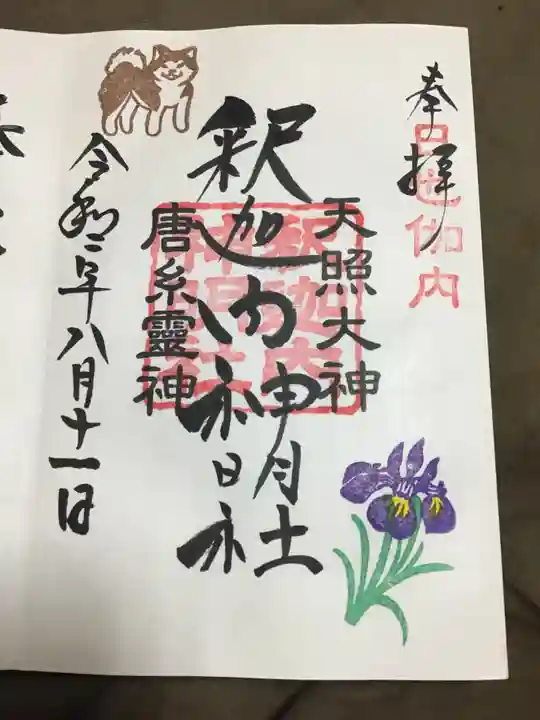 奉拝
天照大神
釈迦内神明社
唐糸靈神
令和二年八月十一日
釈迦内
神明社